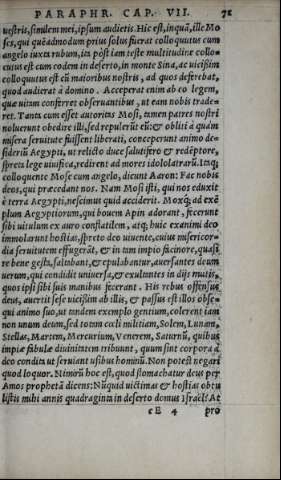 PARAPHR. CAP. VII. 71
uestris, similem mei, ipsum audietis. Hic est, inquā, ille Mo
ses, qui quēadmodum prius solus fuerat colloquutus cum
angelo iuxta rubum, ita pòst iam teste multitudine collo=
cutus est cum eodem in deserto, in monte Sina, ac uicißim
colloquutus est cū maioribus nostris, ad quos deferebat,
quod audierat à domino. Acceperat enim ab eo legem,
quæ uitam conferret obseruantibus, ut eam nobis trade=
ret. Tanta cum esset autoritas Mosi, tamen patres nostri
noluerunt obedire illi, sed repulerūt eū: & obliti à quàm
misera seruitute fuissent liberati, conceperunt animo de=
siderium Aegypti, ut relicto duce salutifero & redēptore,
spreta lege uiuifica, redirent ad mores idololatrarū. Itaq;
colloquente Mose cum angelo, dicunt Aaron: Fac nobis
deos, qui præcedant nos. Nam Mosi isti, qui nos eduxit
è terra Aegypti, nescimus quid acciderit. Moxq; ad exē
plum Aegyptiorum, qui bouem Apin adorant, fecerunt
sibi uitulum ex auro conflatilem, atq; huic exanimi deo
immolarunt hostias, spreto deo uiuente, cuius misericor=
dia seruitutem effugerāt, & in tam impio facinore, quasi
re bene gesta, saltabant, & epulabantur, auersantes deum
uerum, qui condidit uniuersa, & exultantes in dijs mutis,
quos ipsi sibi suis manibus fecerant. His rebus offensus
deus, auertit sese uicißim ab illis, & passus est illos obse=
qui animo suo, ut tandem exemplo gentium, colerent iam
non unum deum, sed totam cœli militiam, Solem, Lunam,
Stellas, Martem, Mercurium, Venerem, Saturnū, quibus
impiæ fabulæ diuinitatem tribuunt, quum sint corpora à
deo condita ut seruiant usibus hominū. Non potest negari
quod loquor. Nimirū hoc est, quod stomachatur deus per
Amos prophetā dicens: Nūquid uictimas & hostias obtu
listis mihi annis quadraginta in deserto domus Israël? At
cE 4 pro